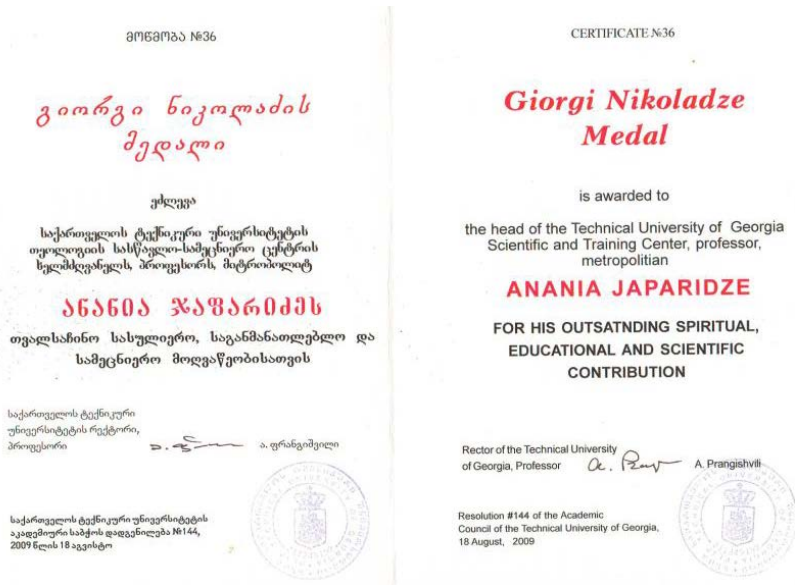 მოწმობა №36
გიორგი ნიკოლაძის
მედალი
ეძლევა
საქართველოს ტექნიკური უნივერსიტეტის
თეოლოგიის სასწავლო-სამეცნიერო ცენტრის
ხელმძღვანელს, პროფესორს, მიტროპოლიტ
ანანია ჯაფარიძეს
თვალსაჩინო სასულიერო, საგანმანათლებლო და
სამეცნიერო მოღვაწეობისათვის
საქართველოს ტექნიკური
უნივერსიტეტის რექტორი,
პროფესორი ა. ფრანგიშვილი
საქართველოს ტექნიკური უნივერსიტეტის
აკადემიური საბჭოს დადგენილება №144,
2009 წლის 18 აგვისტო
CERTIFICATE №36
Giorgi Nikoladze
Medal
is awarded to
the head of the Technical University of Georgia
Scientific and Training Center, professor,
metropolitian
ANANIA JAPARIDZE
FOR HIS OUTSATNDING SPIRITUAL,
EDUCATIONAL AND SCIENTIFIC
CONTRIBUTION
Rector of the Technical University
of Georgia, Professor A. Prangishvili
Resolution #144 of the Academic
Council of the Technical University of Georgia,
18 August, 2009